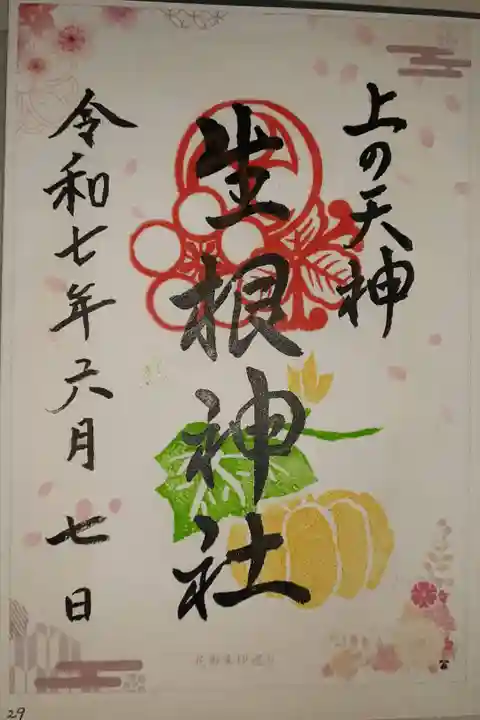 上の天神
生根神社
令和七年六月七日
29